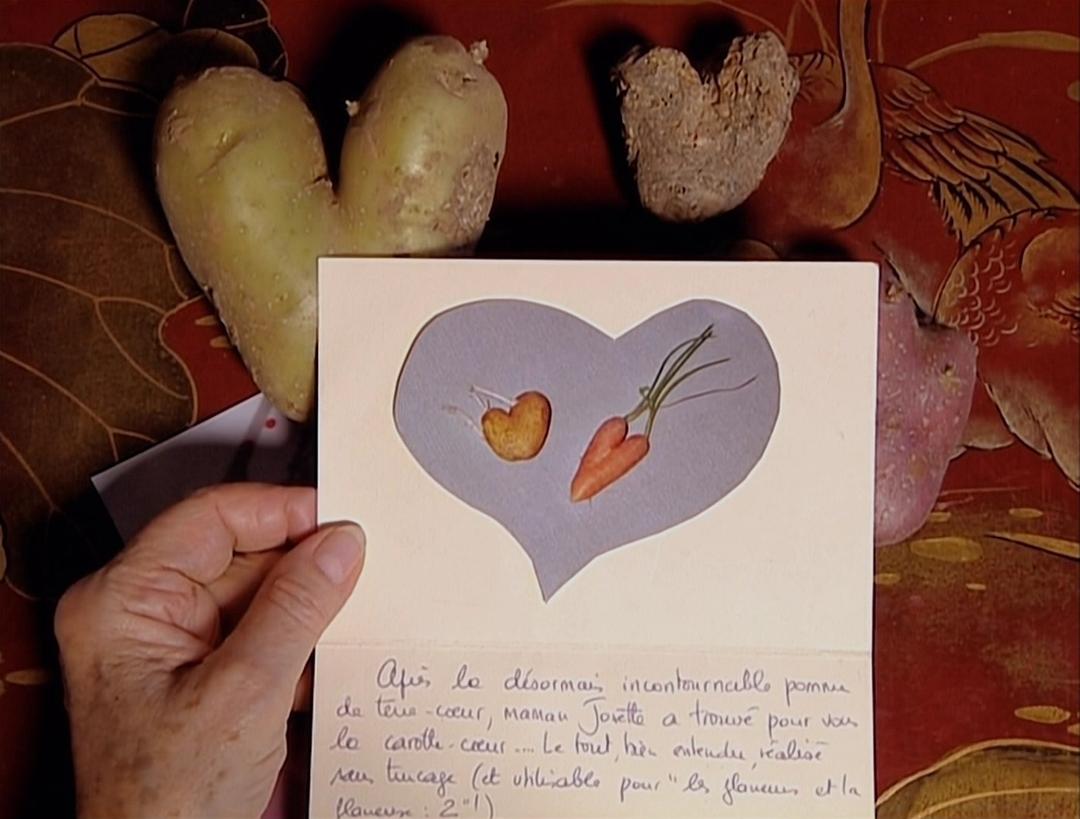 Après la désormais incontournable pomme
de terre-cœur, maman Josette a trouvé pour vous
la carotte-cœur .... Le tout, bien entendu, réalisé
sans trucage (et utilisable pour "les glaneurs et la
glaneuse : 2"!)